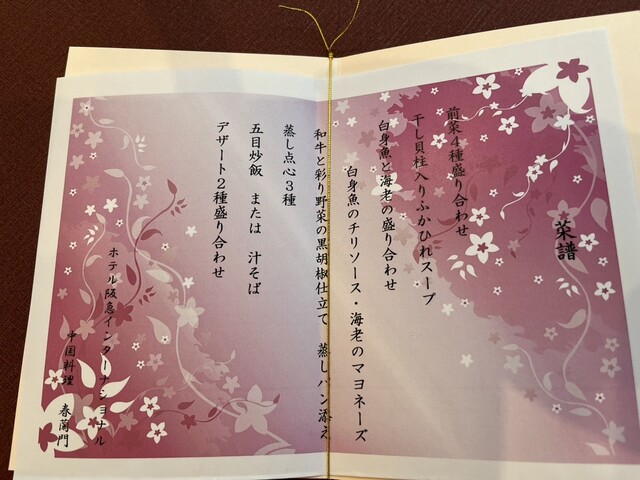 菜譜
前菜４種盛り合わせ
干し貝柱入りふかひれスープ
白身魚と海老の盛り合わせ
白身魚のチリソース・海老のマヨネーズ
和牛と彩り野菜の黒胡椒仕立て　蒸しパン添え
蒸し点心３種
五目炒飯　または　汁そば
デザート２種盛り合わせ
ホテル阪急インターナショナル
中国料理　春蘭門